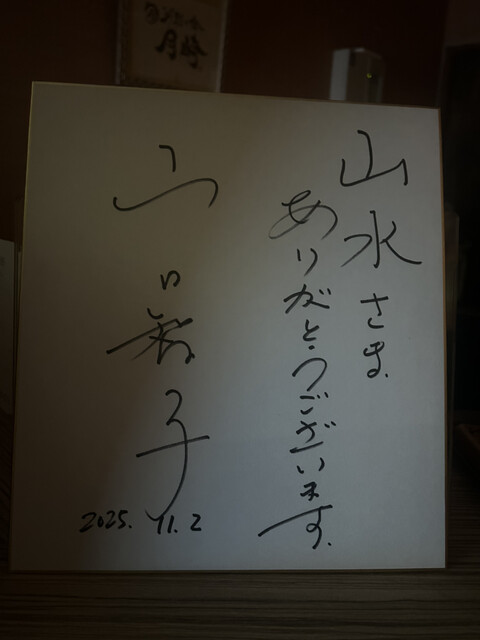 山水さま
ありがとうございます。
山口智子
2025. 11. 2